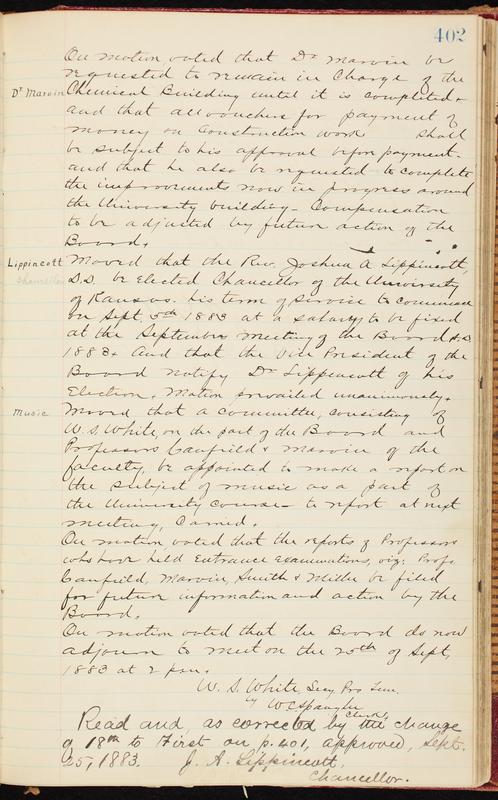 402
On motion, voted that Dr Marvin be
requested to remain in Charge of the
Dr Marvin
Chemical Building until it is completed
and that all vouchers for payment of
money on Construction work shall
be subject to his approval before payment.
and that he also be requested to complete
the improvements now in progress around
the University building - Compensation
to be adjusted by future action of the
Board.
Lippincott
Chancellor
Moved that the Rev. Joshua A Lippincott,
D.D. be elected Chancellor of the University
of Kansas. his term of service to commence
on Sept 5th 1883 at a salary to be fixed
at the September meeting of the Board
1883. And that the Vice President of the
Board notify Dr Lippencott of his
Election. Motion prevailed unanimously.
Music
Moved that a committee, consisting of
W. S. White, on the part of the Board and
Professors Canfield & Marvin of the
faculty, be appointed to make a report on
the subject of music as a part of
the University course - to report at next
meeting, Carried.
On motion voted that the reports of Professors
who have held Entrance examinations, viz; Profs.
Canfield, Marvin, Smith & Miller be filed
for future information and action by the
Board.
On motion voted that the Board do now
adjourn to meet on the 25th of Sept,
1883 at 2 p.m.
W. S. White Secy Pro Tem.
by W C Spangler
Clerk,
Read and, as corrected by the change
of 18th to First on p. 401, approved, Sept.
25, 1883. J. A. Lippincott,
Chancellor.